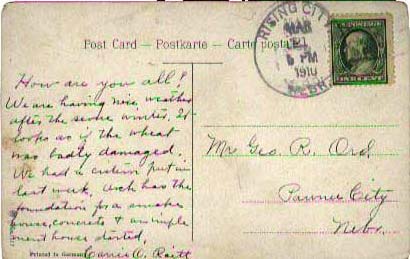 Post Card – Postkarte – Carte postale
RISING CITY
MAR
21
6 PM
1910
NEBR.
How are you all?
We are having nice weather
after the severe winter. It
looks as if the wheat
was badly damaged.
We had a cistern put in
last week. Arch has the
foundation for a smoke
house, concrete & an imple
ment house started.
Carrie O.
Mr Geo. R. Ord.
Pawnee City
Nebr.
Printed in Germany